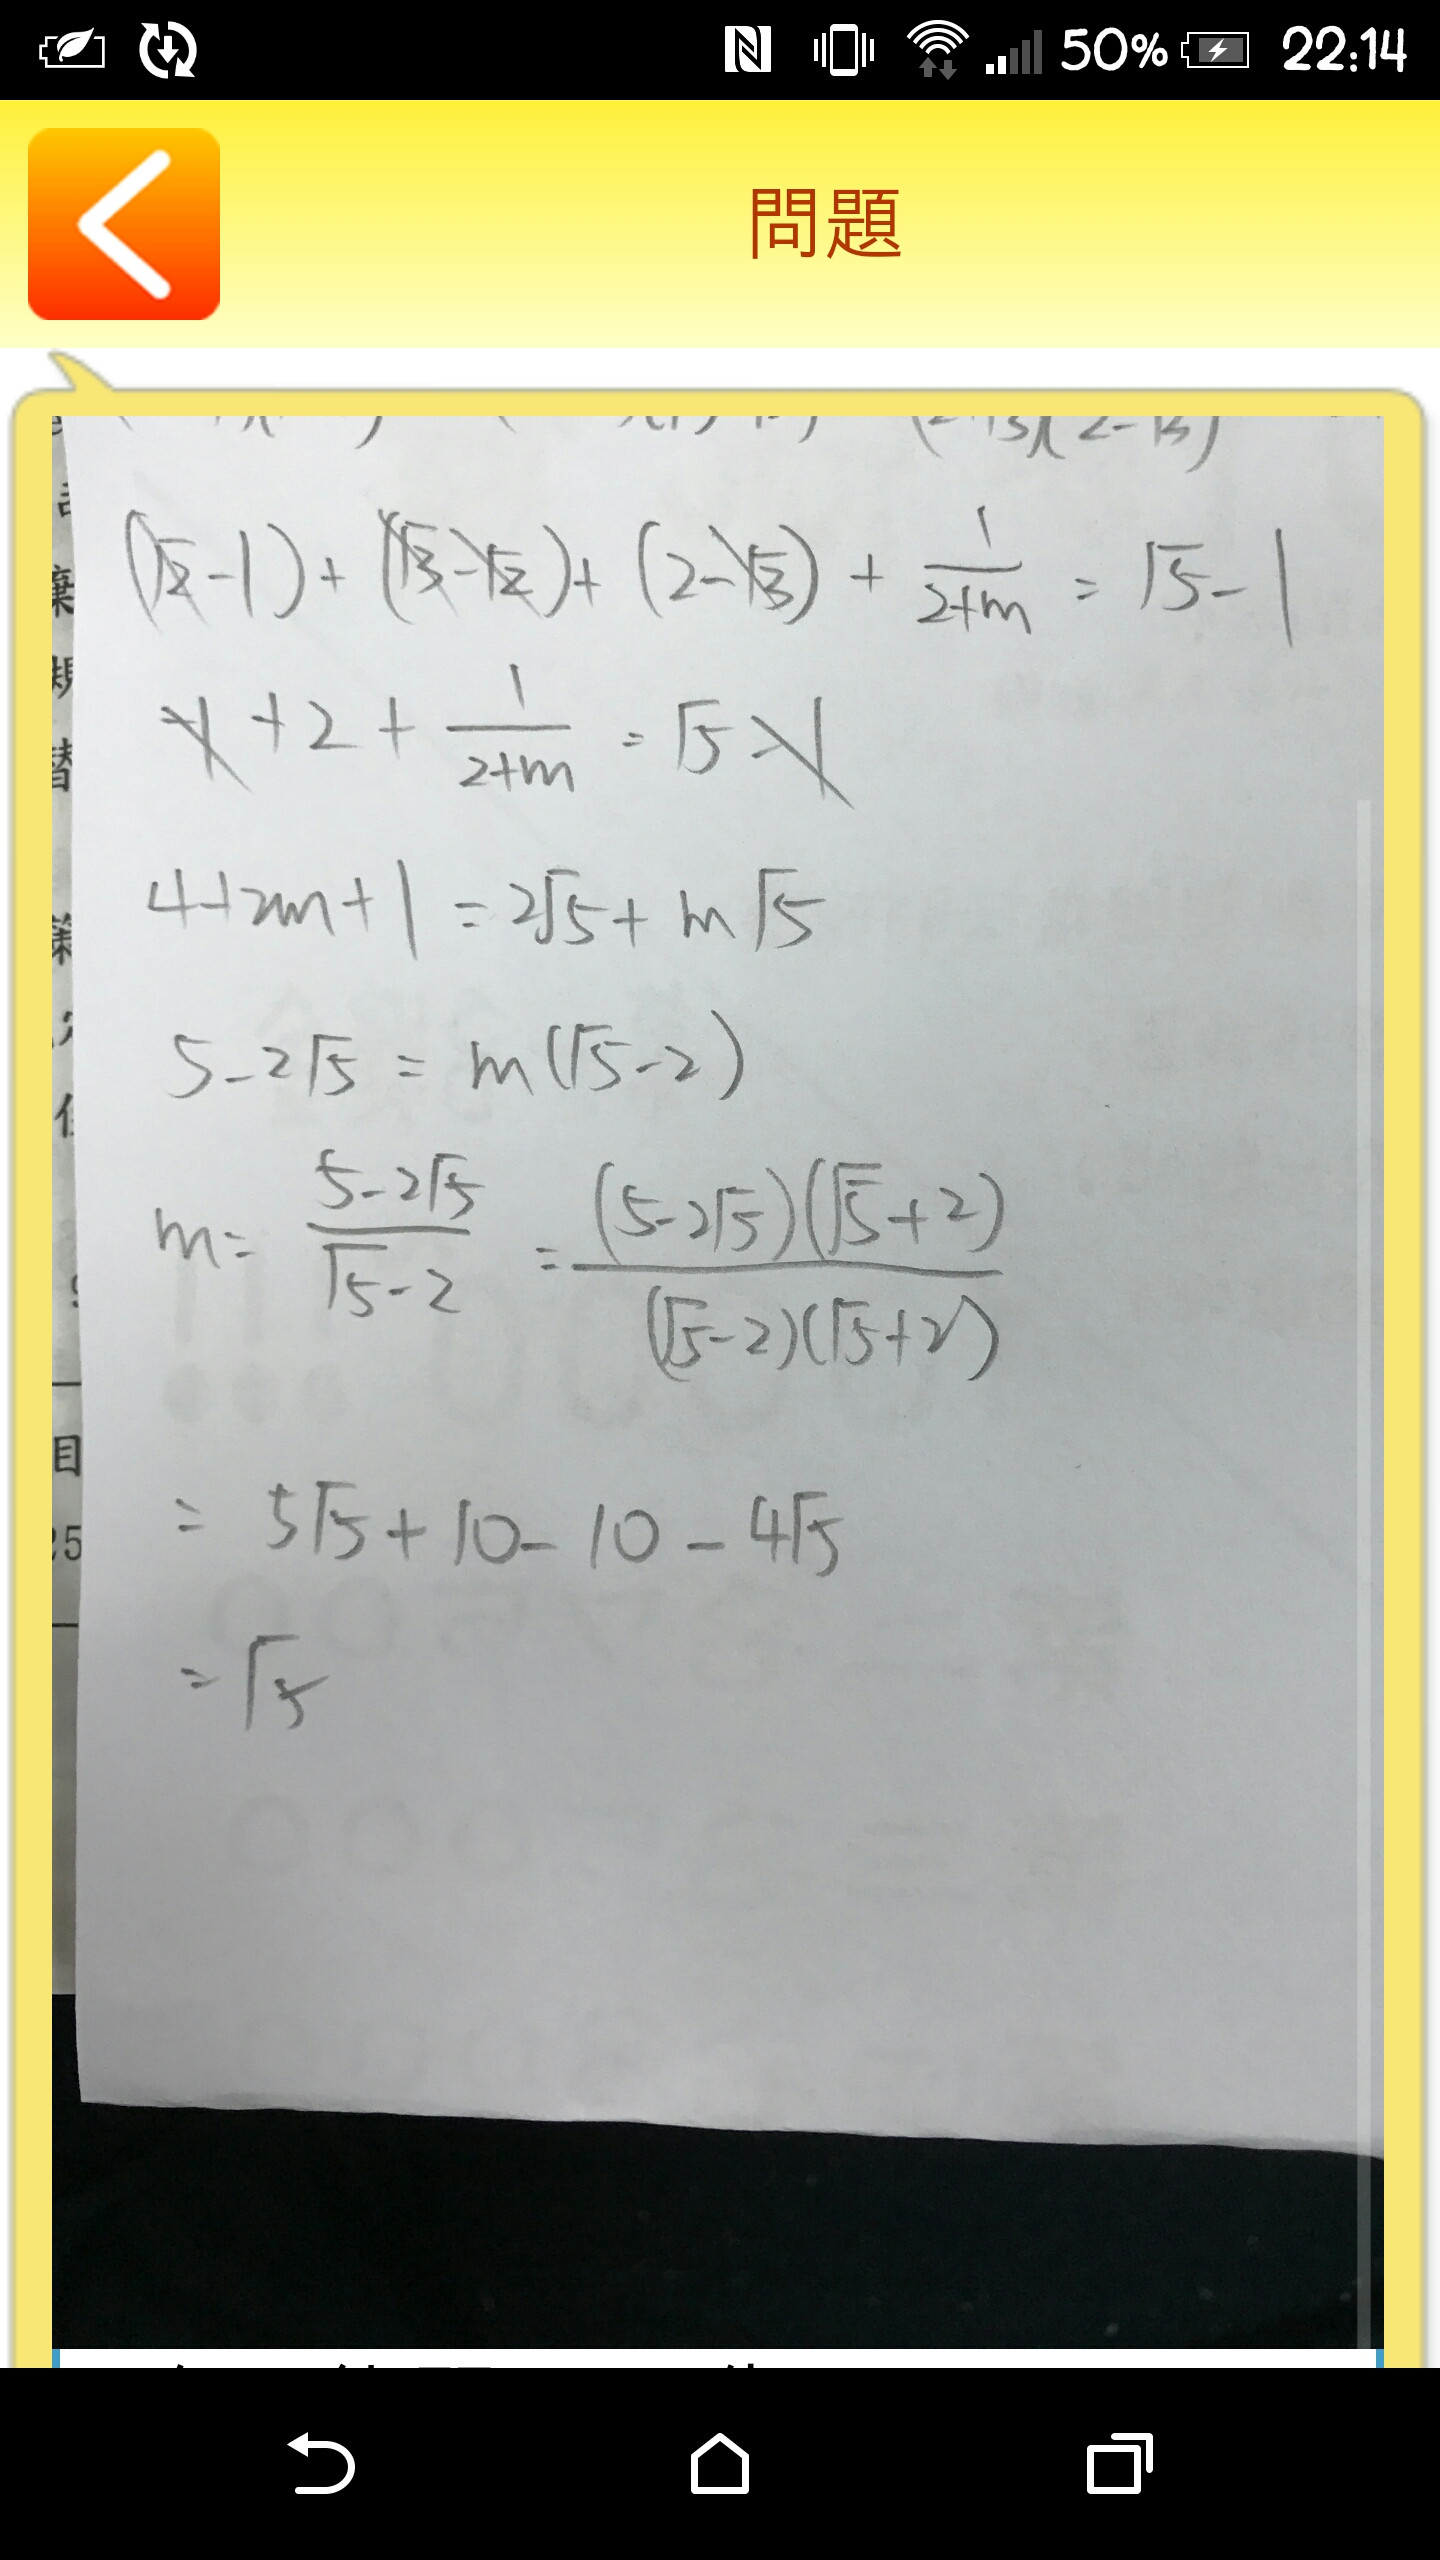 50% 22:14
問題
(√2-1)+(√3-√2)+(2-√3)+1/(2+m)=√5-1
-1+2+1/(2+m)=√5-1
4+2m+1=2√5+m√5
5-2√5=m(√5-2)
m=(5-2√5)/(√5-2)=(5-2√5)(√5+2)/(√5-2)(√5+2)
=5√5+10-10-4√5
=√5